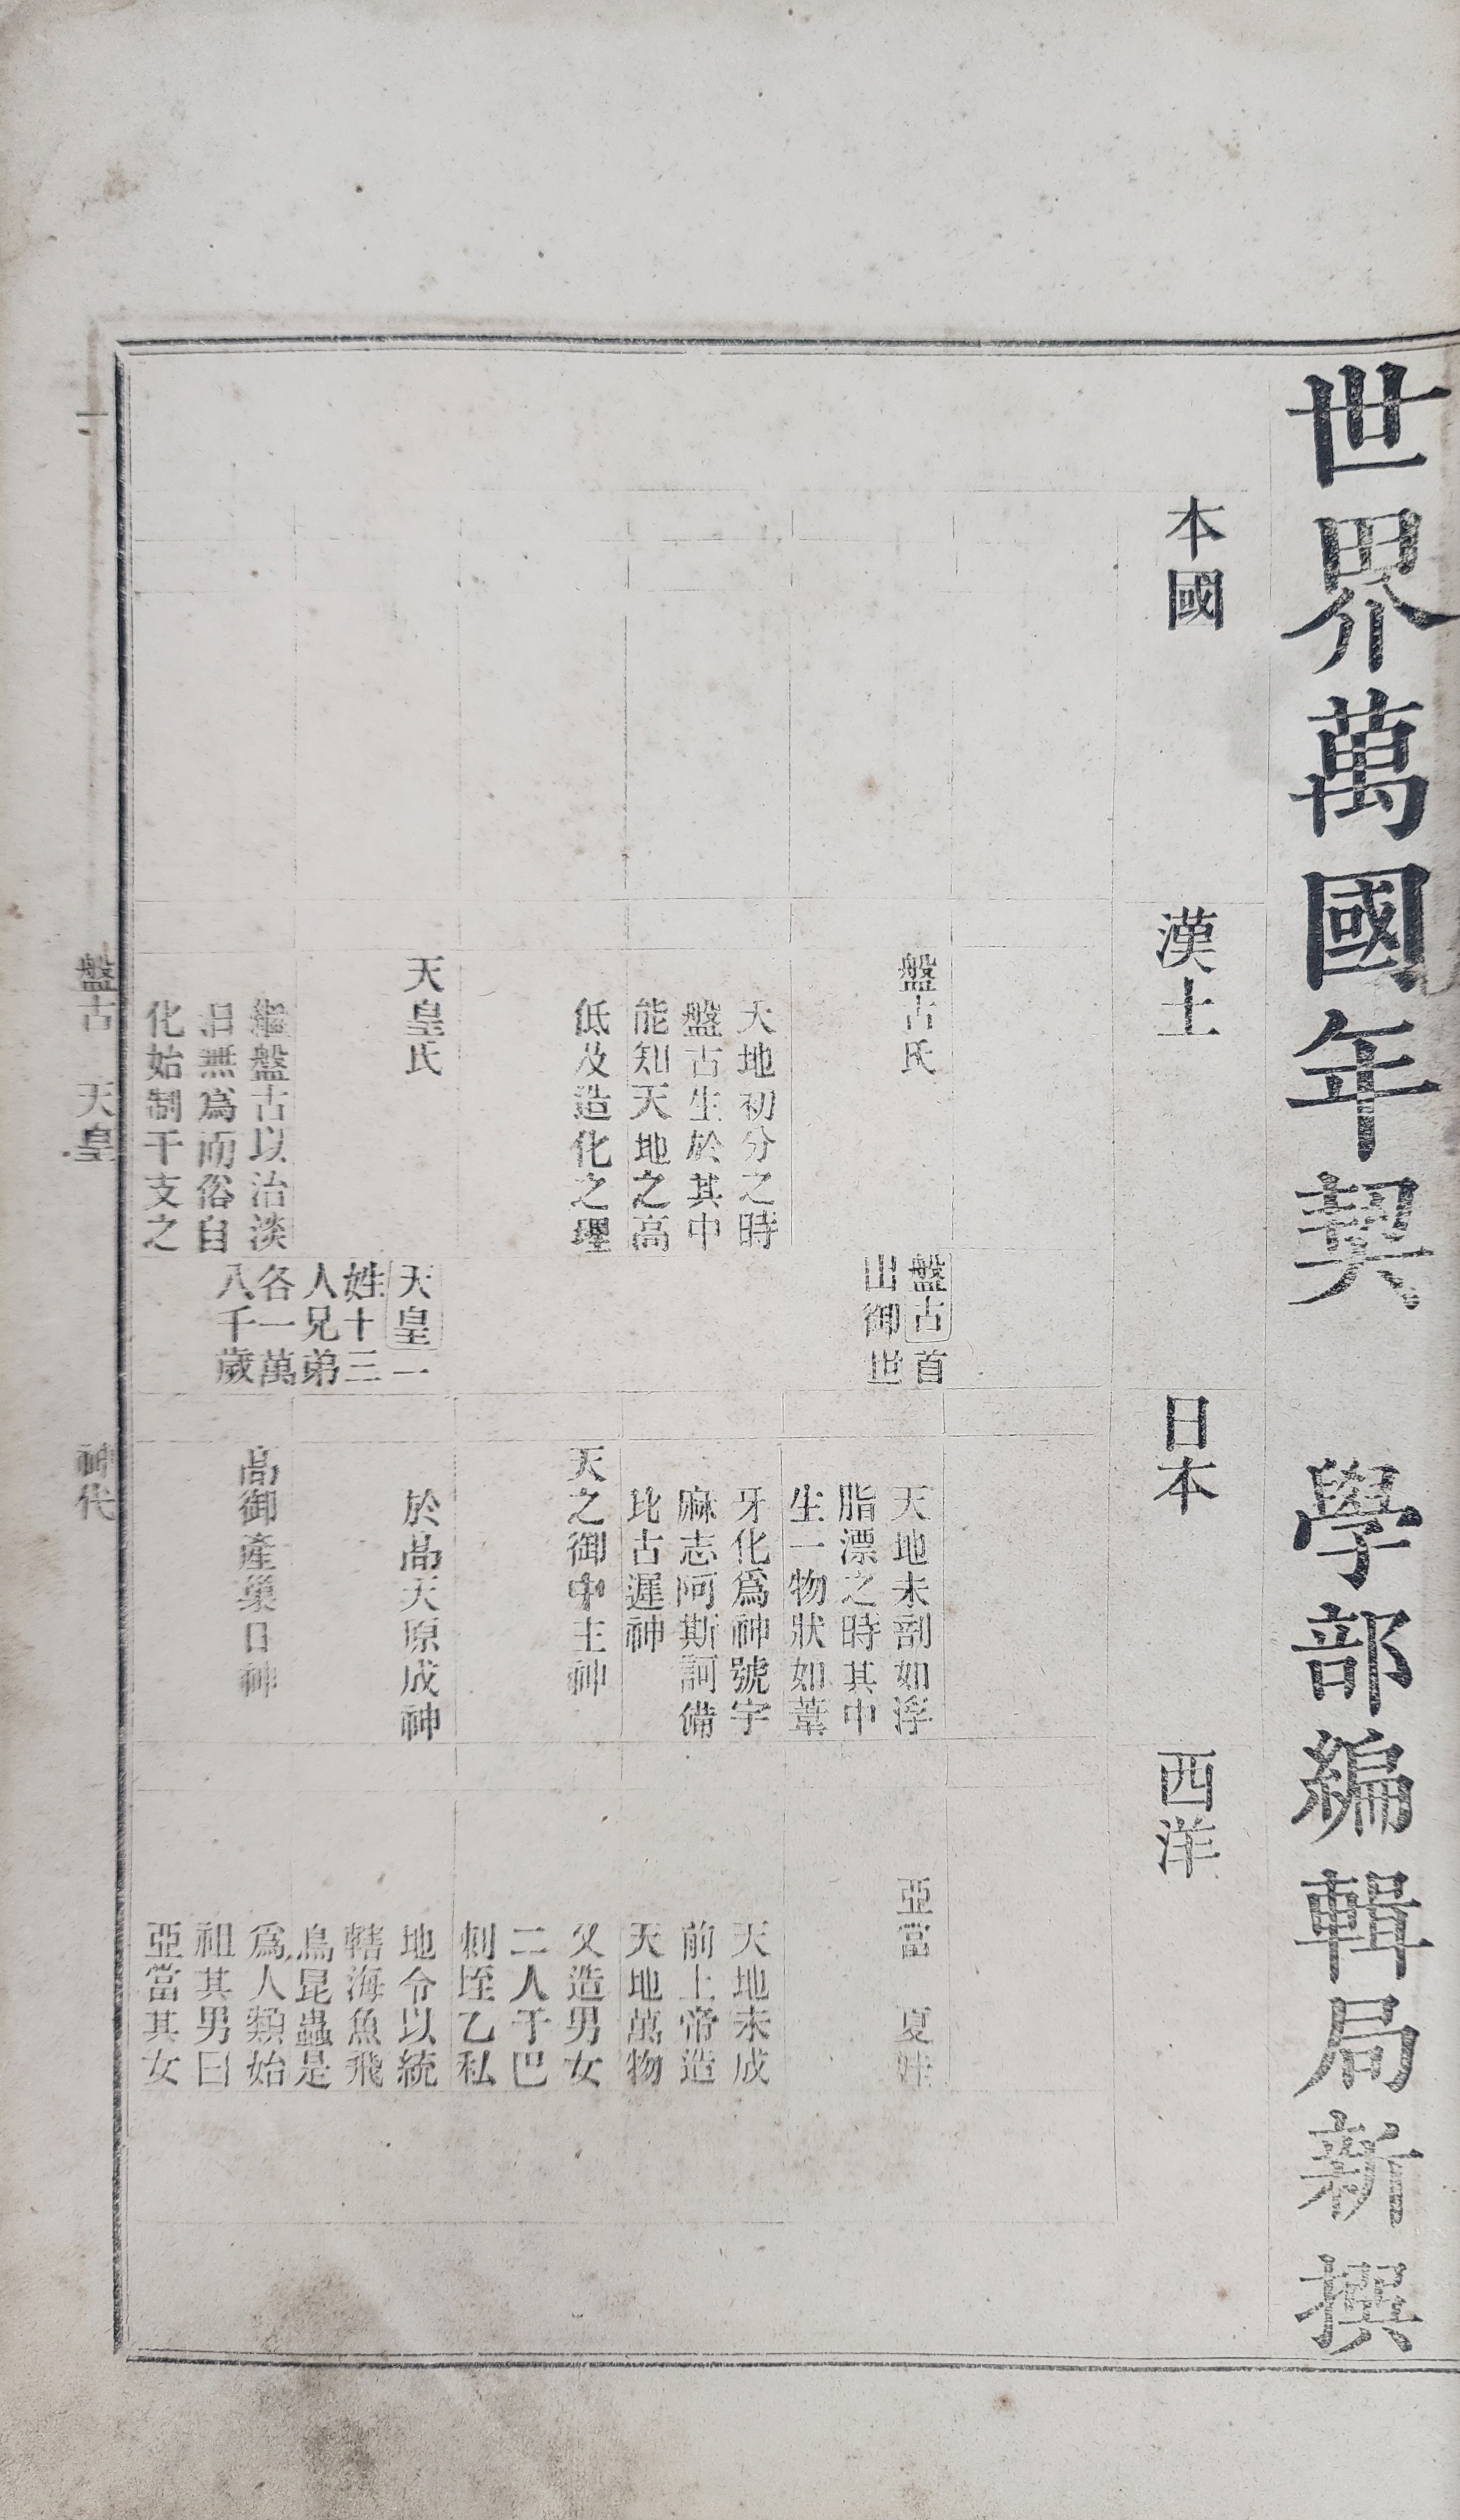 世界萬國年契 學部編輯局新撰
本國
漢土
日本
西洋
盤古氏
天地初分之時
盤古生於其中
能知天地之高
低及造化之理
天皇氏
繼盤古以治淡
泊無爲而俗自
化始制干支之
盤古首
出御世
天皇一
姓十三
人兄弟
各一萬
八千歲
天地未剖如浮
脂漂之時其中
生一物狀如葦
牙化爲神號宇
麻志阿斯訶備
比古遲神
天之御中主神
於高天原成神
高御產巢日神
亞當 夏娃
天地未成
前上帝造
天地萬物
又造男女
二人于巴
刺坵乙私
地令以統
轄海魚飛
鳥昆蟲是
爲人類始
祖其男曰
亞當其女
一
盤古 天皇
神代